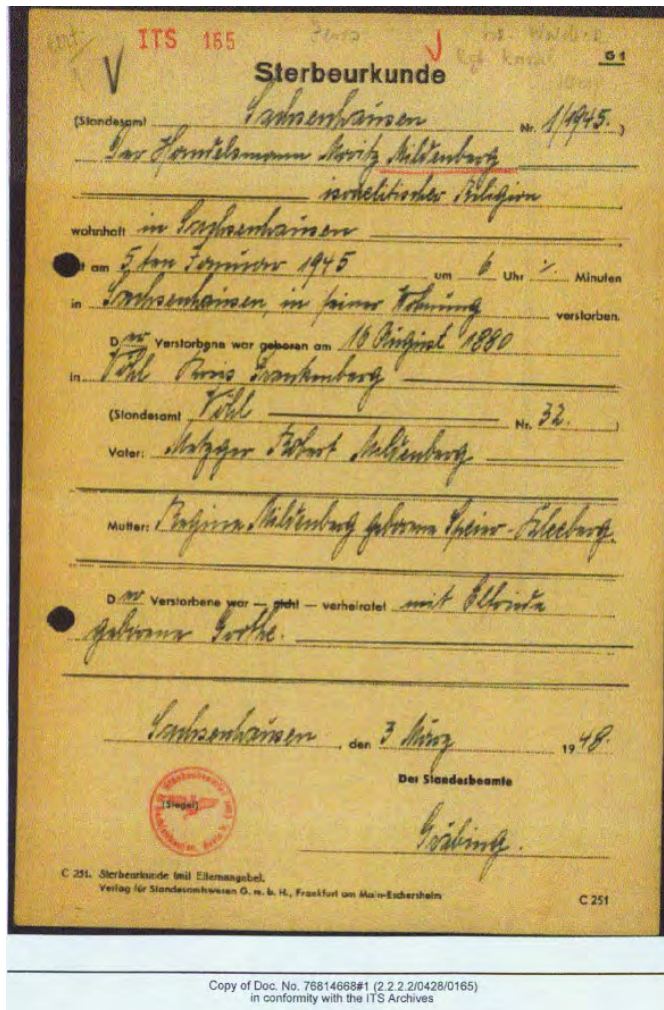 ITS 165
G1
Sterbeurkunde
(Standesamt Sachsenhausen Nr. 1/1945.)
Der Handelsmann Moritz Mildenberg
israelitischer Religion
wohnhaft in Sachsenhausen
ist am 5ten Januar 1945 um 6 Uhr ·/. Minuten
in Sachsenhausen, in seiner Wohnung verstorben.
D er Verstorbene war geboren am 16 August 1880
in Vöhl Kreis Frankenberg
(Standesamt Vöhl Nr. 32.)
Vater: Metzger Robert Mildenberg
Mutter: Regina Mildenberg geborene Speier-Kleeberg.
D er Verstorbene war — nicht — verheiratet mit Elfriede
geborene Grothe.
Sachsenhausen, den 3 März 1948.
Der Standesbeamte
(Siegel)
Gräbing.
C 251. Sterbeurkunde (mit Elternangabe).
Verlag für Standesamtswesen G. m. b. H., Frankfurt am Main-Eschersheim
C 251
Copy of Doc. No. 76814668#1 (2.2.2.2/0428/0165)
in conformity with the ITS Archives